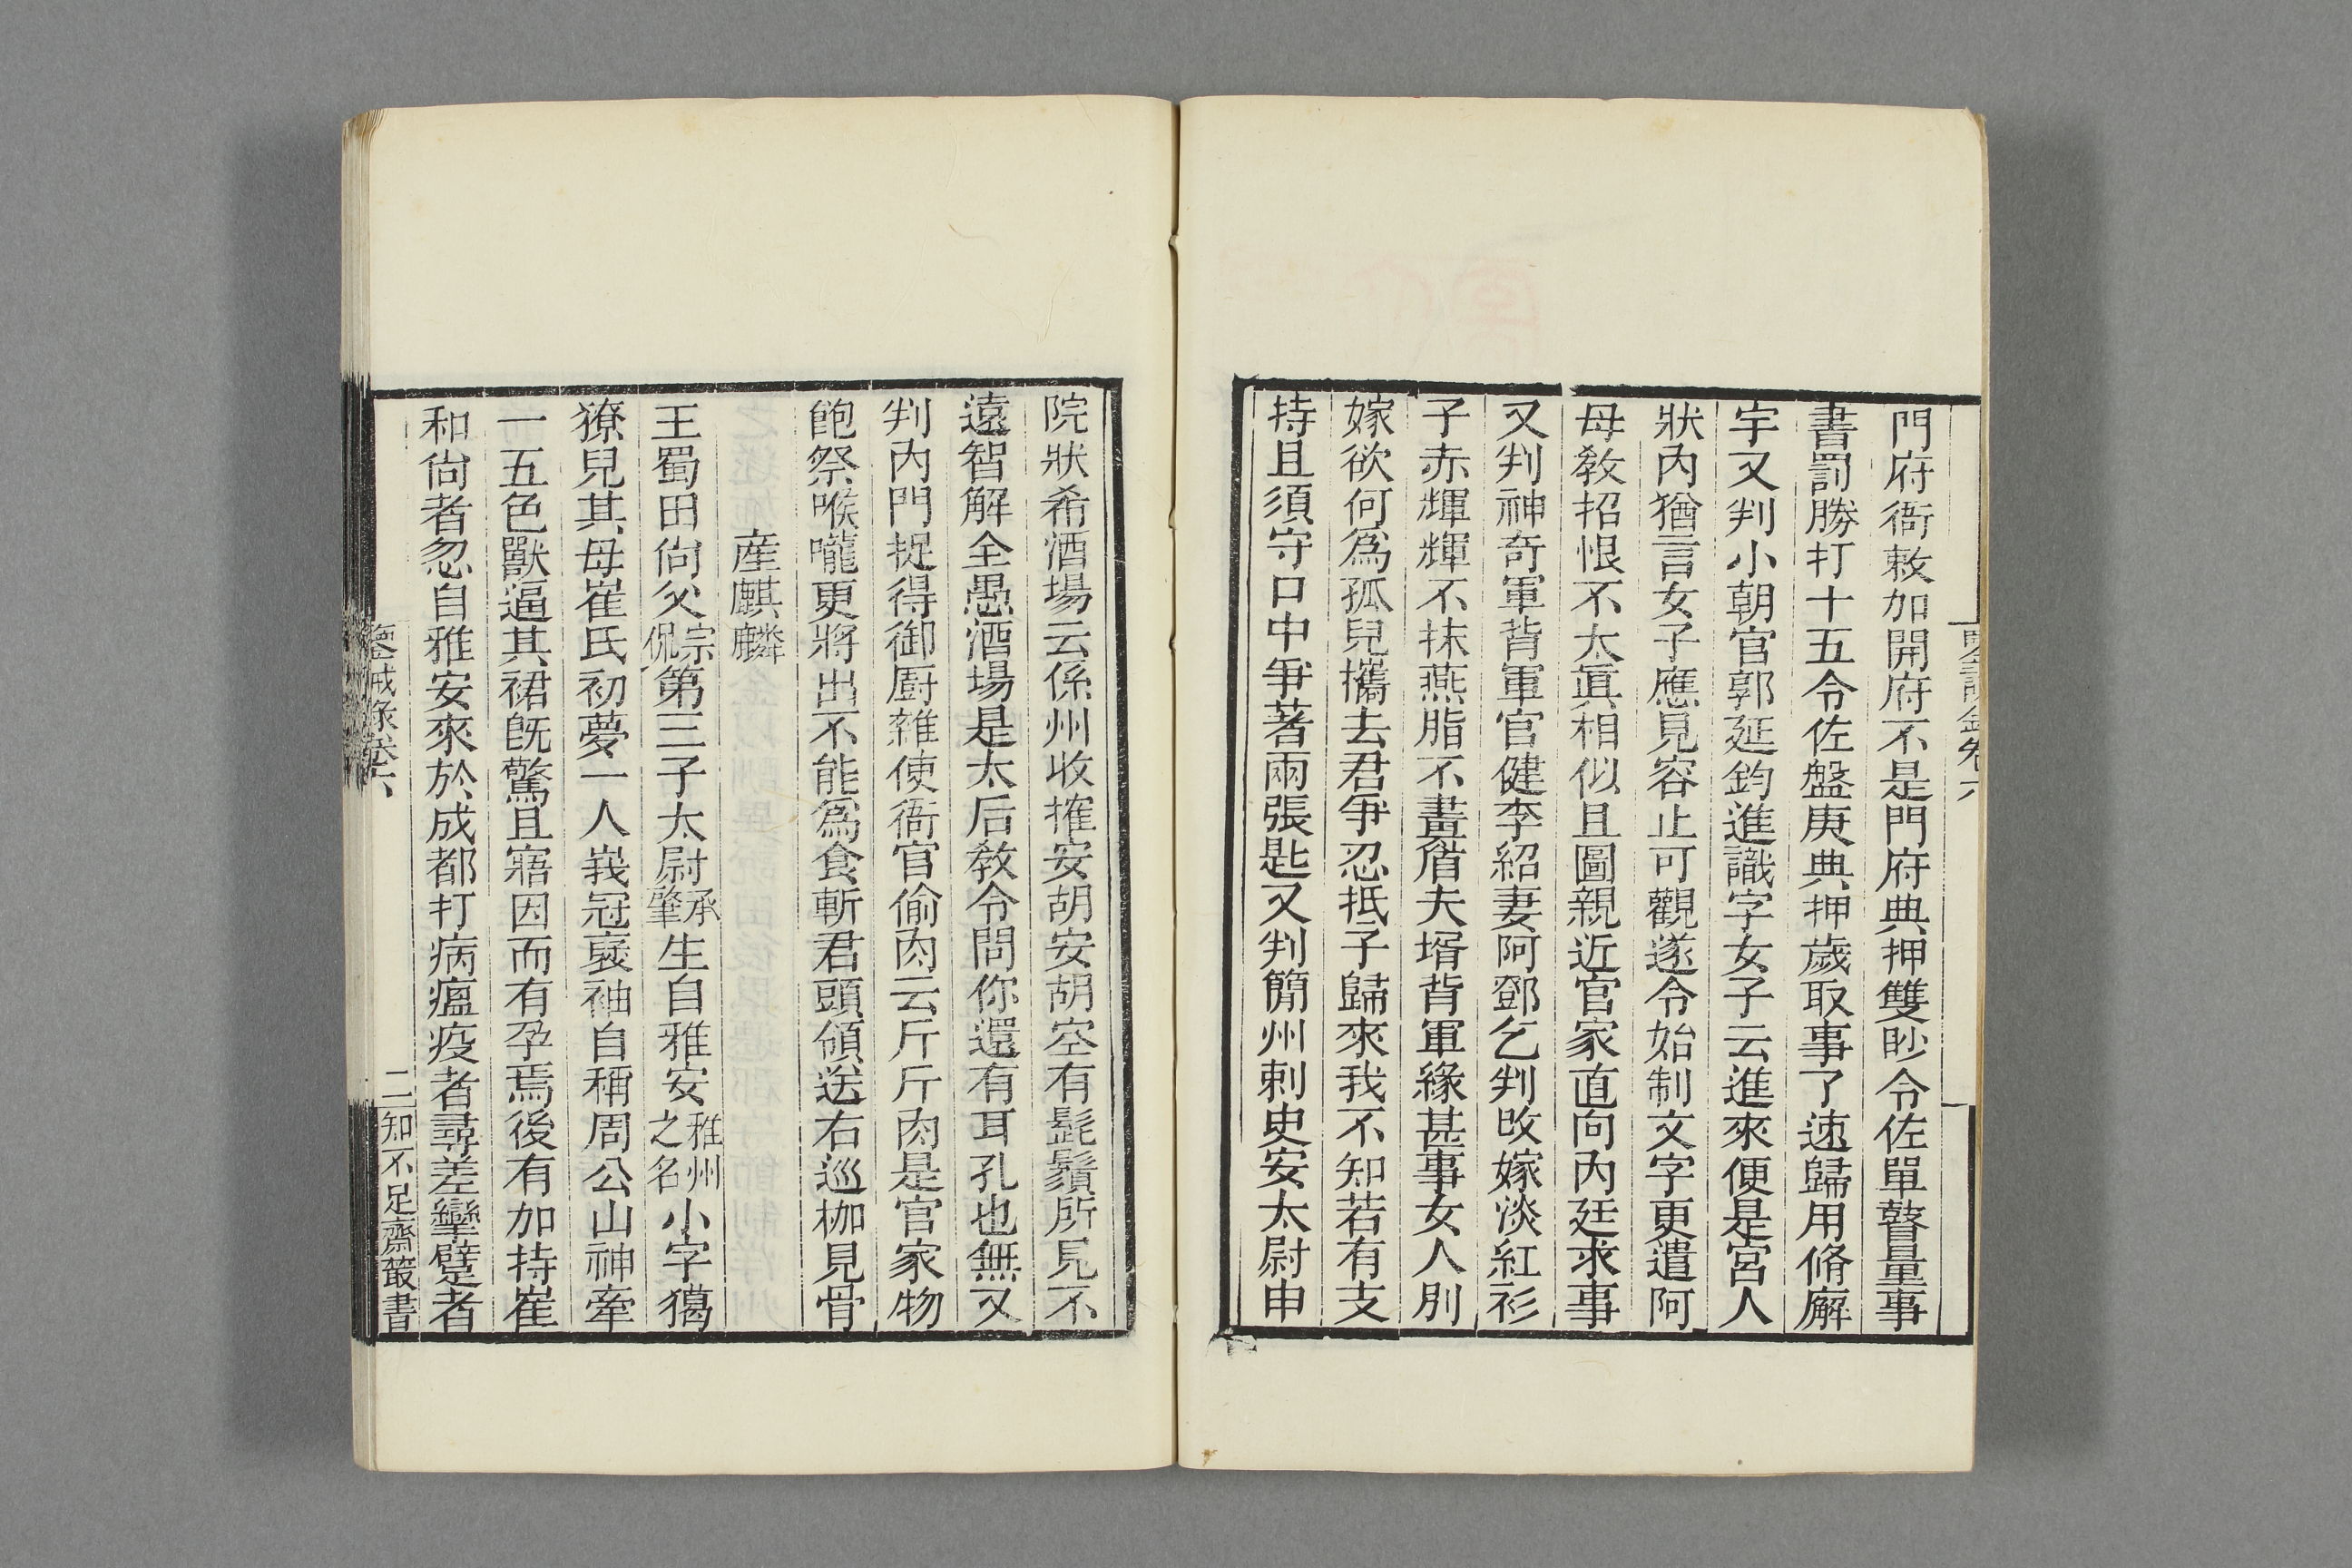 門府衙敕加開府不是門府典押雙眇令佐單瞽量事
書罰勝打十五令佐盤庚典押歲取事了速歸用脩廨
宇又判小朝官郭延鈞進識字女子云進來便是宮人
狀內猶言女子應見容止可觀遂令始制文字更遣阿
母敎招恨不太眞相似且圖親近官家直向內廷求事
又判神奇軍背軍官健李紹妻阿鄧乞判改嫁淡紅衫
子赤輝輝不抹燕脂不畫眉夫壻背軍緣甚事女人別
嫁欲何爲孤兒攜去君爭忍抵子歸來我不知若有支
持且須守口中爭著兩張匙又判簡州刺史安太尉申
院狀希酒場云係州收搉安胡安胡空有髭鬚所見不
遠智解全愚酒場是太后敎令問你還有耳孔也無又
判內門捉得御廚雜使衙官偷肉云斤斤肉是官家物
飽祭喉嚨更將出不能爲食斬君頭領送右巡枷見骨
產麒麟
王蜀田尙父宗侃第三子太尉承肇生自雅安雅州之名小字獦
獠兒其母崔氏初夢一人峩冠裒袖自稱周公山神牽
一五色獸逼其裙旣驚且寤因而有孕焉後有加持崔
和尙者忽自雅安來於成都打病瘟疫者尋差攣躄者
鑒戒錄卷六 二 知不足齋叢書